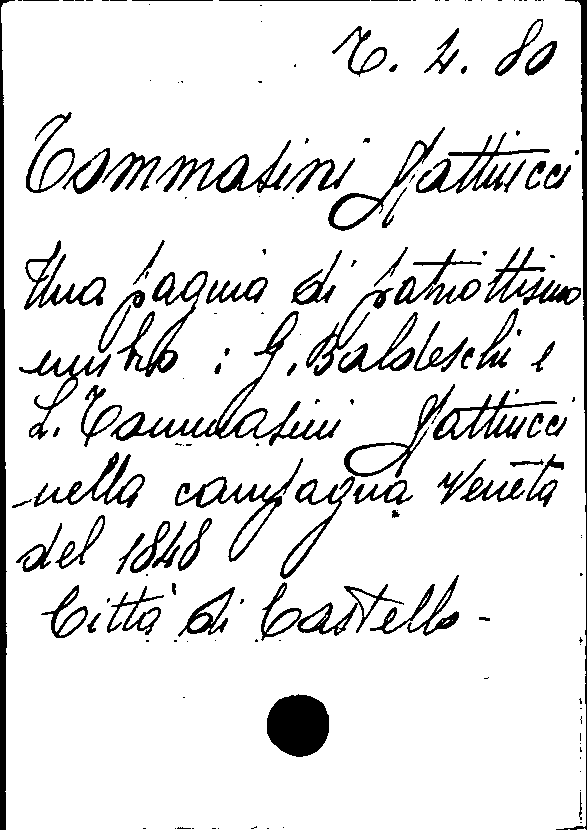 T. 2. 80
Tommasini Mattiucci
Una pagina di patriottismo
umbro : G. Baldeschi e
L. Tommasini Mattiucci
nella campagna Veneta
del 1848
Città di Castello -